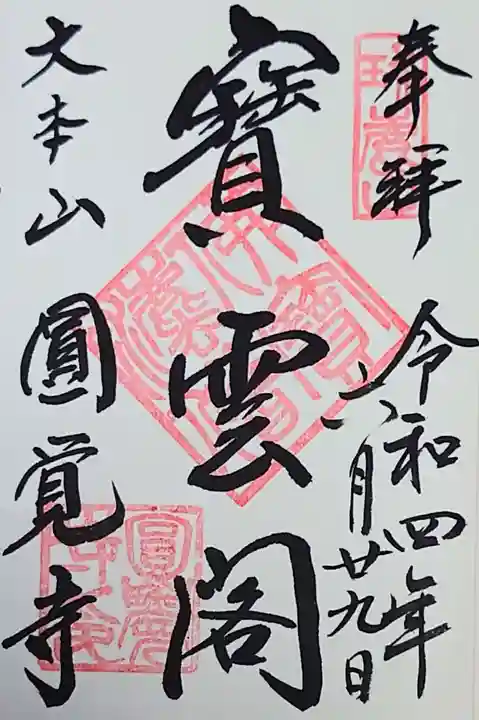 奉拝
令和四年
六月廿九日
寶雲閣
大本山 圓覚寺